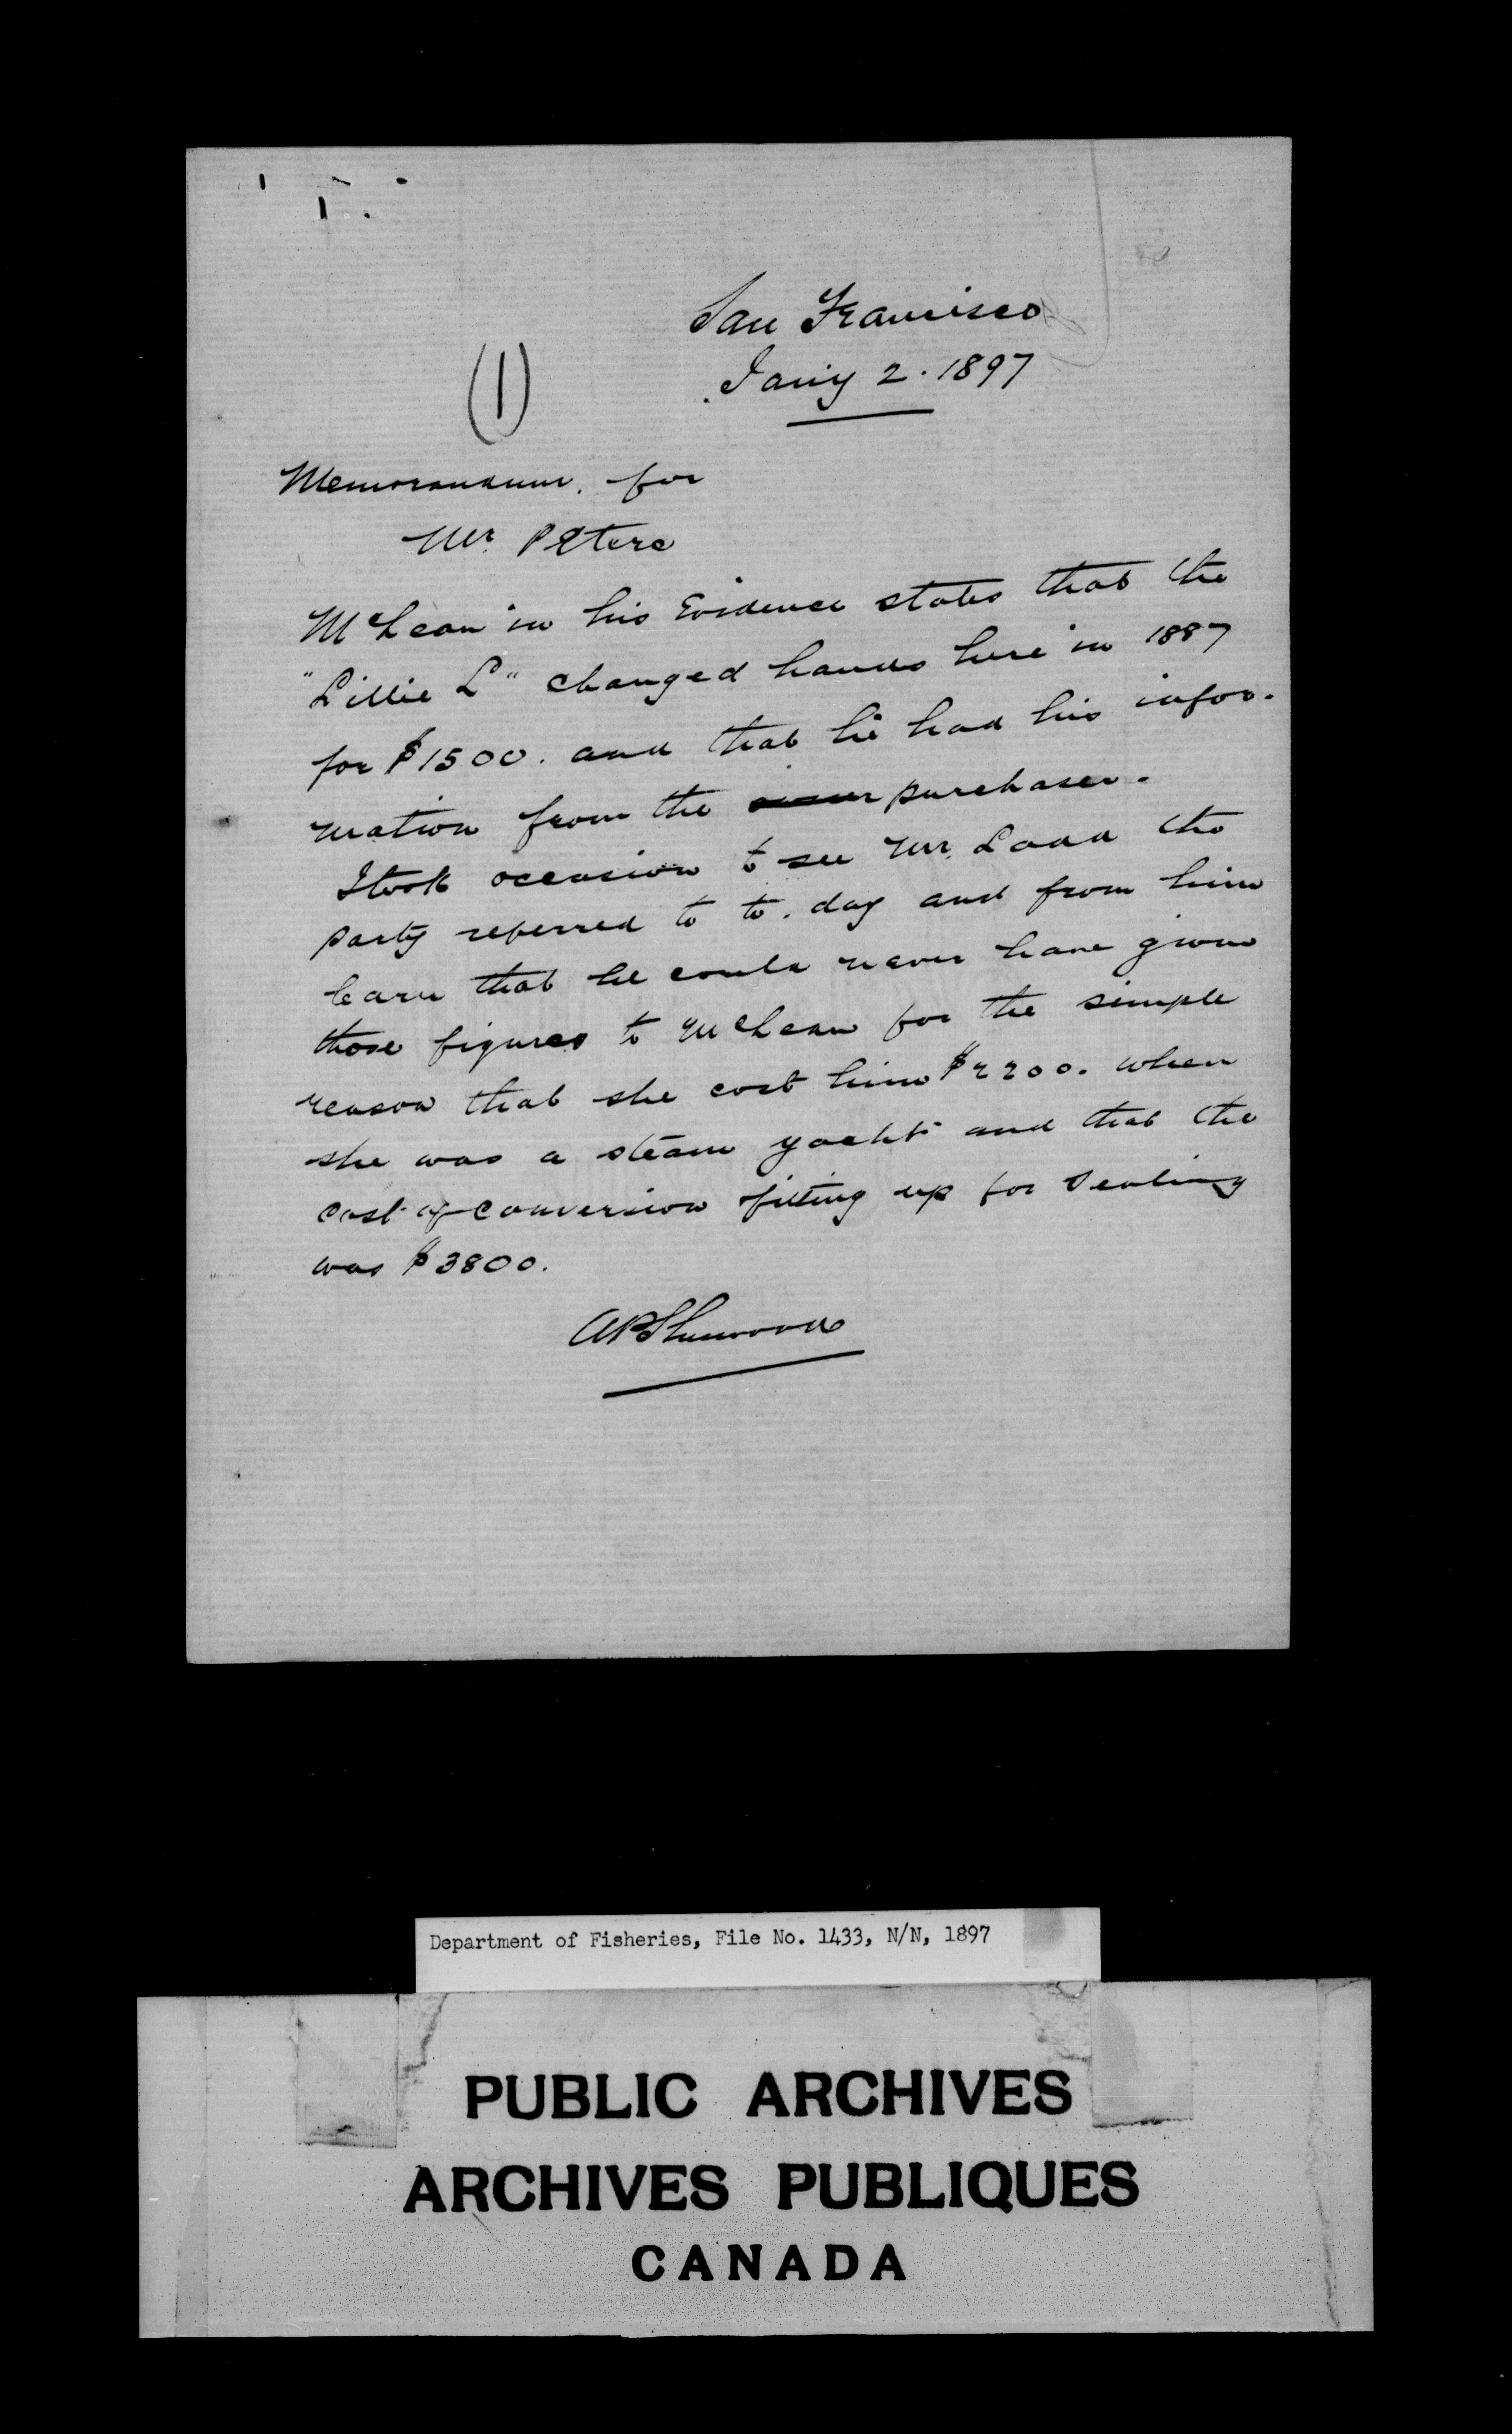 San Francisco
Jan'y 2. 1897
(1)
Memorandum. for
Mr. Peters
McLean in his Evidence states that the
"Lillie L" changed hands here in 1887
for $1500. and that he had his infor-
mation from the owner purchaser.
I took occasion to see Mr. Ladd the
party referred to to.day and from him
learn that he could never have given
those figures to McLean for the simple
reason that she cost him $2200. when
she was a steam yacht and that the
cost of conversion fitting up for sealing
was $3800.
APSherwood
Department of Fisheries, File No. 1433, N/N, 1897
PUBLIC ARCHIVES
ARCHIVES PUBLIQUES
CANADA